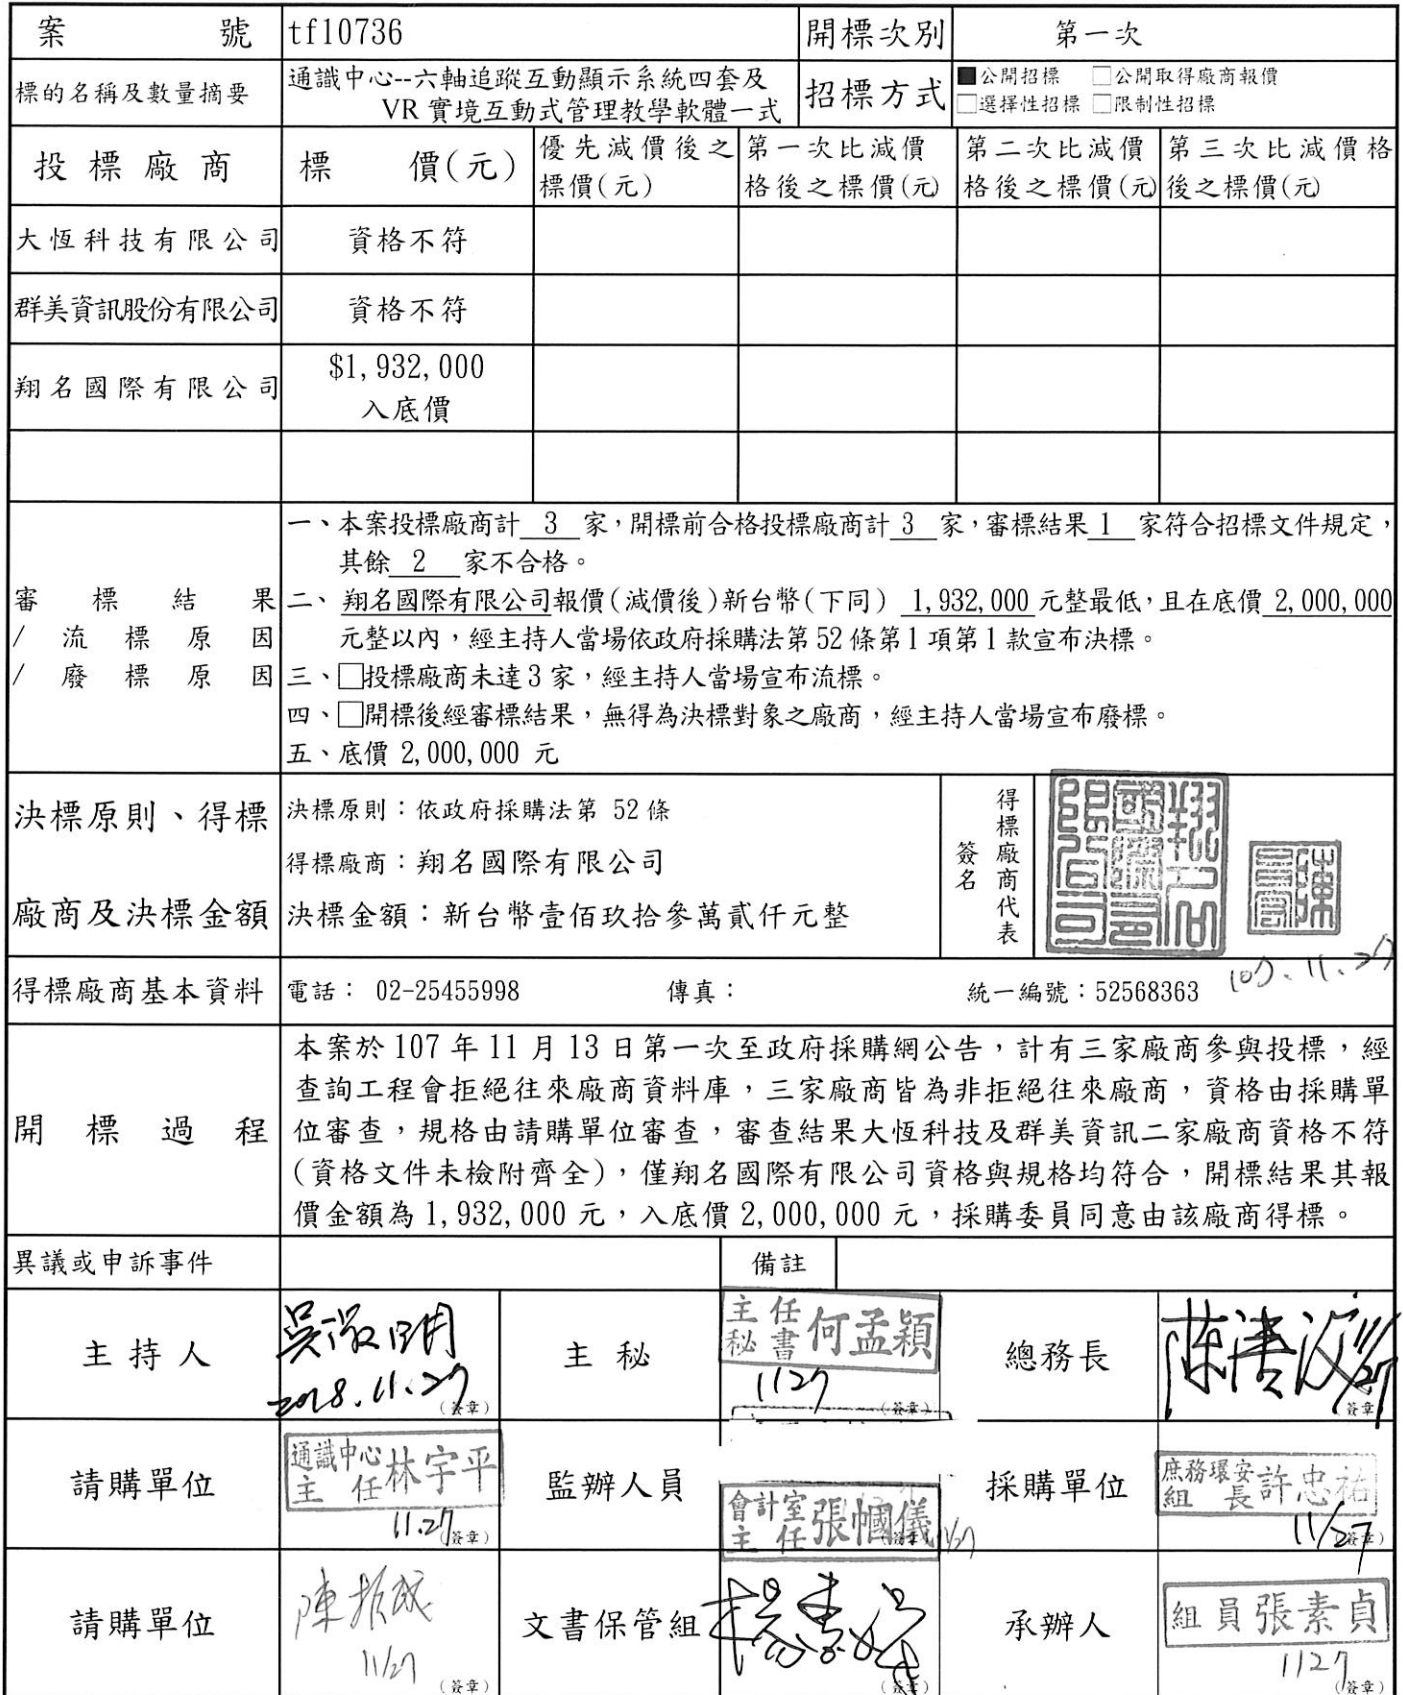 案 號 tf10736 開標次別 第一次
標的名稱及數量摘要 通識中心--六軸追蹤互動顯示系統四套及
VR 實境互動式管理教學軟體一式
招標方式 ■公開招標 □公開取得廠商報價
□選擇性招標 □限制性招標
投標廠商 標 價(元) 優先減價後之 第一次比減價 第二次比減價 第三次比減價格
標價(元) 格後之標價(元) 格後之標價(元) 後之標價(元)
大恆科技有限公司 資格不符
群美資訊股份有限公司 資格不符
翔名國際有限公司 $1,932,000
入底價
審標結果
/流標原因
/廢標原因
一、本案投標廠商計 3 家,開標前合格投標廠商計 3 家,審標結果 1 家符合招標文件規定,
其餘 2 家不合格。
二、翔名國際有限公司報價(減價後)新台幣(下同) 1,932,000 元整最低,且在底價 2,000,000
元整以內,經主持人當場依政府採購法第 52 條第 1 項第 1 款宣布決標。
三、□投標廠商未達 3 家,經主持人當場宣布流標。
四、□開標後經審標結果,無得為決標對象之廠商,經主持人當場宣布廢標。
五、底價 2,000,000 元
決標原則、得標
廠商及決標金額
決標原則:依政府採購法第 52 條
得標廠商:翔名國際有限公司
決標金額:新台幣壹佰玖拾參萬貳仟元整
得標廠商代表
簽名
翔名國際有限公司
107.11.27
得標廠商基本資料 電話: 02-25455998 傳真: 統一編號:52568363
開標過程
本案於 107 年 11 月 13 日第一次至政府採購網公告,計有三家廠商參與投標,經
查詢工程會拒絕往來廠商資料庫,三家廠商皆為非拒絕往來廠商,資格由採購單
位審查,規格由請購單位審查,審查結果大恆科技及群美資訊二家廠商資格不符
(資格文件未檢附齊全),僅翔名國際有限公司資格與規格均符合,開標結果其報
價金額為 1,932,000 元,入底價 2,000,000 元,採購委員同意由該廠商得標。
異議或申訴事件 備註
主持人
2018.11.27
(簽章)
主秘
主任
秘書 何孟穎
1127
(簽章)
總務長
11/27
(簽章)
請購單位
通識中心
主任 林宇平
11.27
(簽章)
監辦人員
會計室
主任 張幗儀
11/27
採購單位
庶務環安
組長 許忠祐
11/27
(簽章)
請購單位
11/27
(簽章)
文書保管組
(簽章)
承辦人
組員張素貞
1127
(簽章)